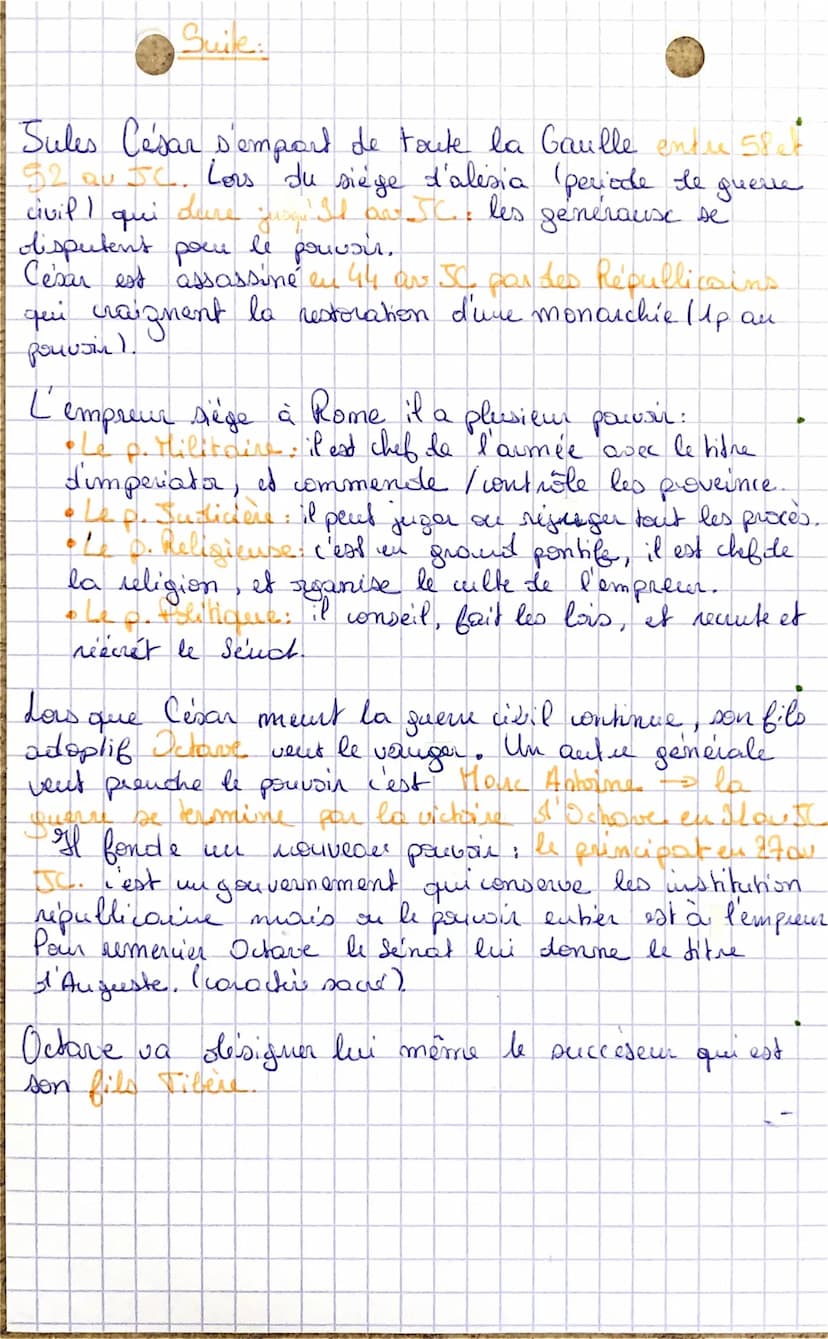 Suite:
Jules César s'empart de toute la Gaulle entre 58 et
52 av JC. Lors du siège d'alésia (période de guerre
civil) qui dure jusqu'31 av JC: les généraux se
disputent pour le pouvoir.
César est assassiné en 44 av JC par des Républicains
qui craignent la restoration d'une monarchie (1p au
pouvoir).
L'empreur siège à Rome il a plusieur pouvoir:
• Le p. Militaire: il est chef de l'armée avec le titre
d'imperiator, et commende / contrôle les proveince.
• Le p. Judicière: il peut juger ou rejuger tout les procès.
• Le p. Religieuse: c'est un grand pontife, il est chef de
la religion, et organise le culte de l'empreur.
• Le p. Politique: il conseil, fait les lois, et recrute et
le Sénat.
Lors que César meurt la guerre civil continue, son fils
adoptif Octave veut le vanger. Un autre générale
veut prendre le pouvoir c'est Marc Antoine → la
guerre se termine par la victoire d'Octave en 31 av JC
Il fonde un nouveau pouvoir: le principat en 27 av
JC. c'est un gouvernement qui conserve les institution
républicaine mais ou le pouvoir entier est à l'empreur
Pour remercier Octave le Sénat lui donne le titre
d'Auguste. (caractère sacré)
Octave va désigner lui même le succéseur qui est
son fils Tibère.